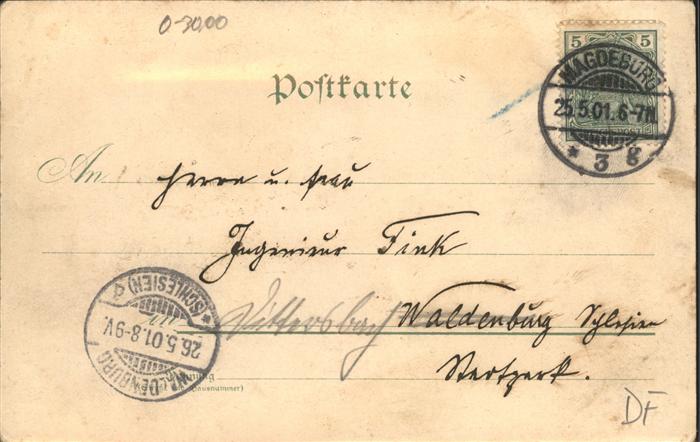 0-30,00
5 5
MAGDEBURG
25.5.01.6-7N
* 3 8
Postkarte
An Herrn u. Frau
Ingenieur Fink
Dittersbach Waldenburg Schlesien
WALDENBURG
26.5.01.8-9V.
*(SCHLESIEN) d
DF